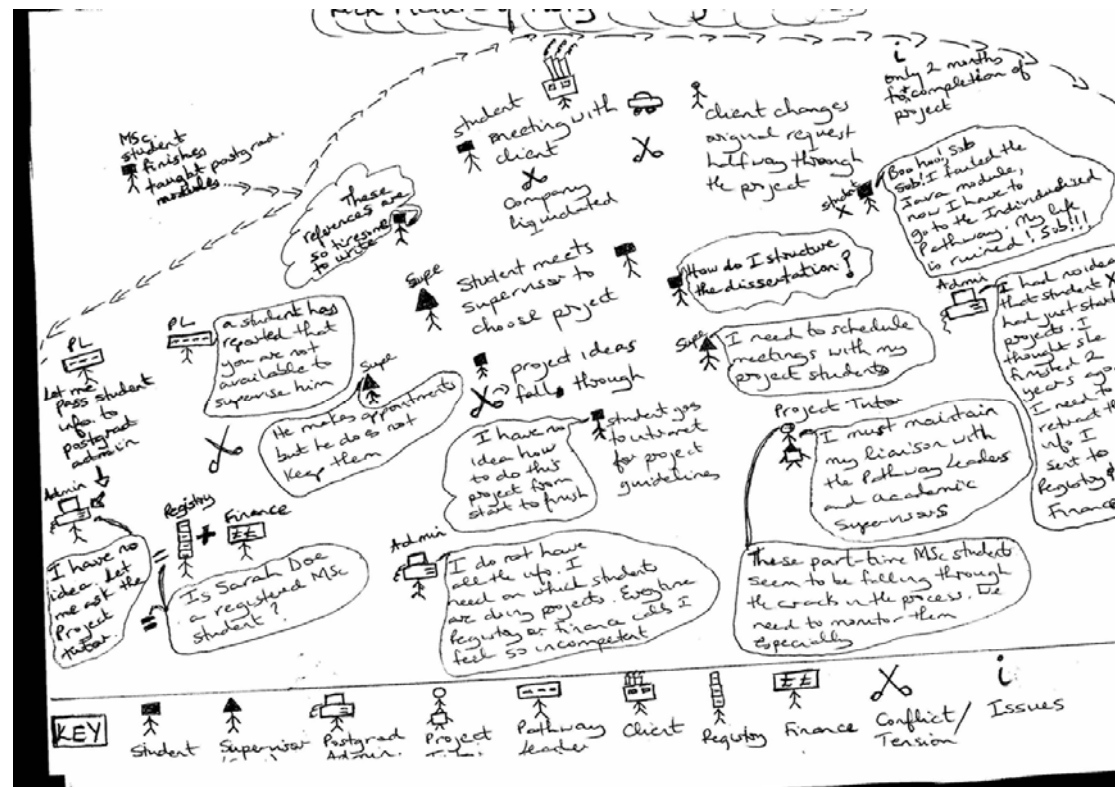 Rich Picture of
MSc
student
finishes
taught postgrad.
modules
student
meeting with
client
Company
liquidated
client changes
original request
halfway through
the project
i
only 2 months
to completion of
project
These
references are
so tiresome
to write
student
X
Boo hoo! Sob
Sob! I failed the
Java module,
now I have to
go to the Individualised
Pathway. My life
is ruined! Sob!!!
Supe
Student meets
supervisor to
choose project
How do I structure
the dissertation?
Admin
I had no idea
that student X
had just start
projects. I
thought she
finished 2
years ago
I need to
retract the
info I
sent to
Registry &
Finance
PL
Let me
pass student
info. to
postgrad
admin
PL
a student has
reported that
you are not
available to
supervise him
Supe
He makes appointments
but he does not
keep them
project ideas
fall through
Supe
I need to schedule
meetings with my
project students
I have no
idea how
to do this
project from
start to finish
student goes
to intranet
for project
guidelines
Project Tutor
I must maintain
my liaison with
the Pathway Leaders
and academic
Supervisors
Admin
I have no
idea. Let
me ask the
Project
tutor.
Registry
+
Finance
££
Is Sarah Doe
a registered MSc
student?
Admin
I do not have
all the info. I
need on which students
are doing projects. Everytime
Registry or Finance calls I
feel so incompetent
These part-time MSc students
seem to be falling through
the crack in the process. We
need to monitor them
especially
KEY
Student
Supervisor
Postgrad
Admin.
Project
Pathway
leader
Client
Registry
££
Finance
Conflict/
Tension
i
Issues